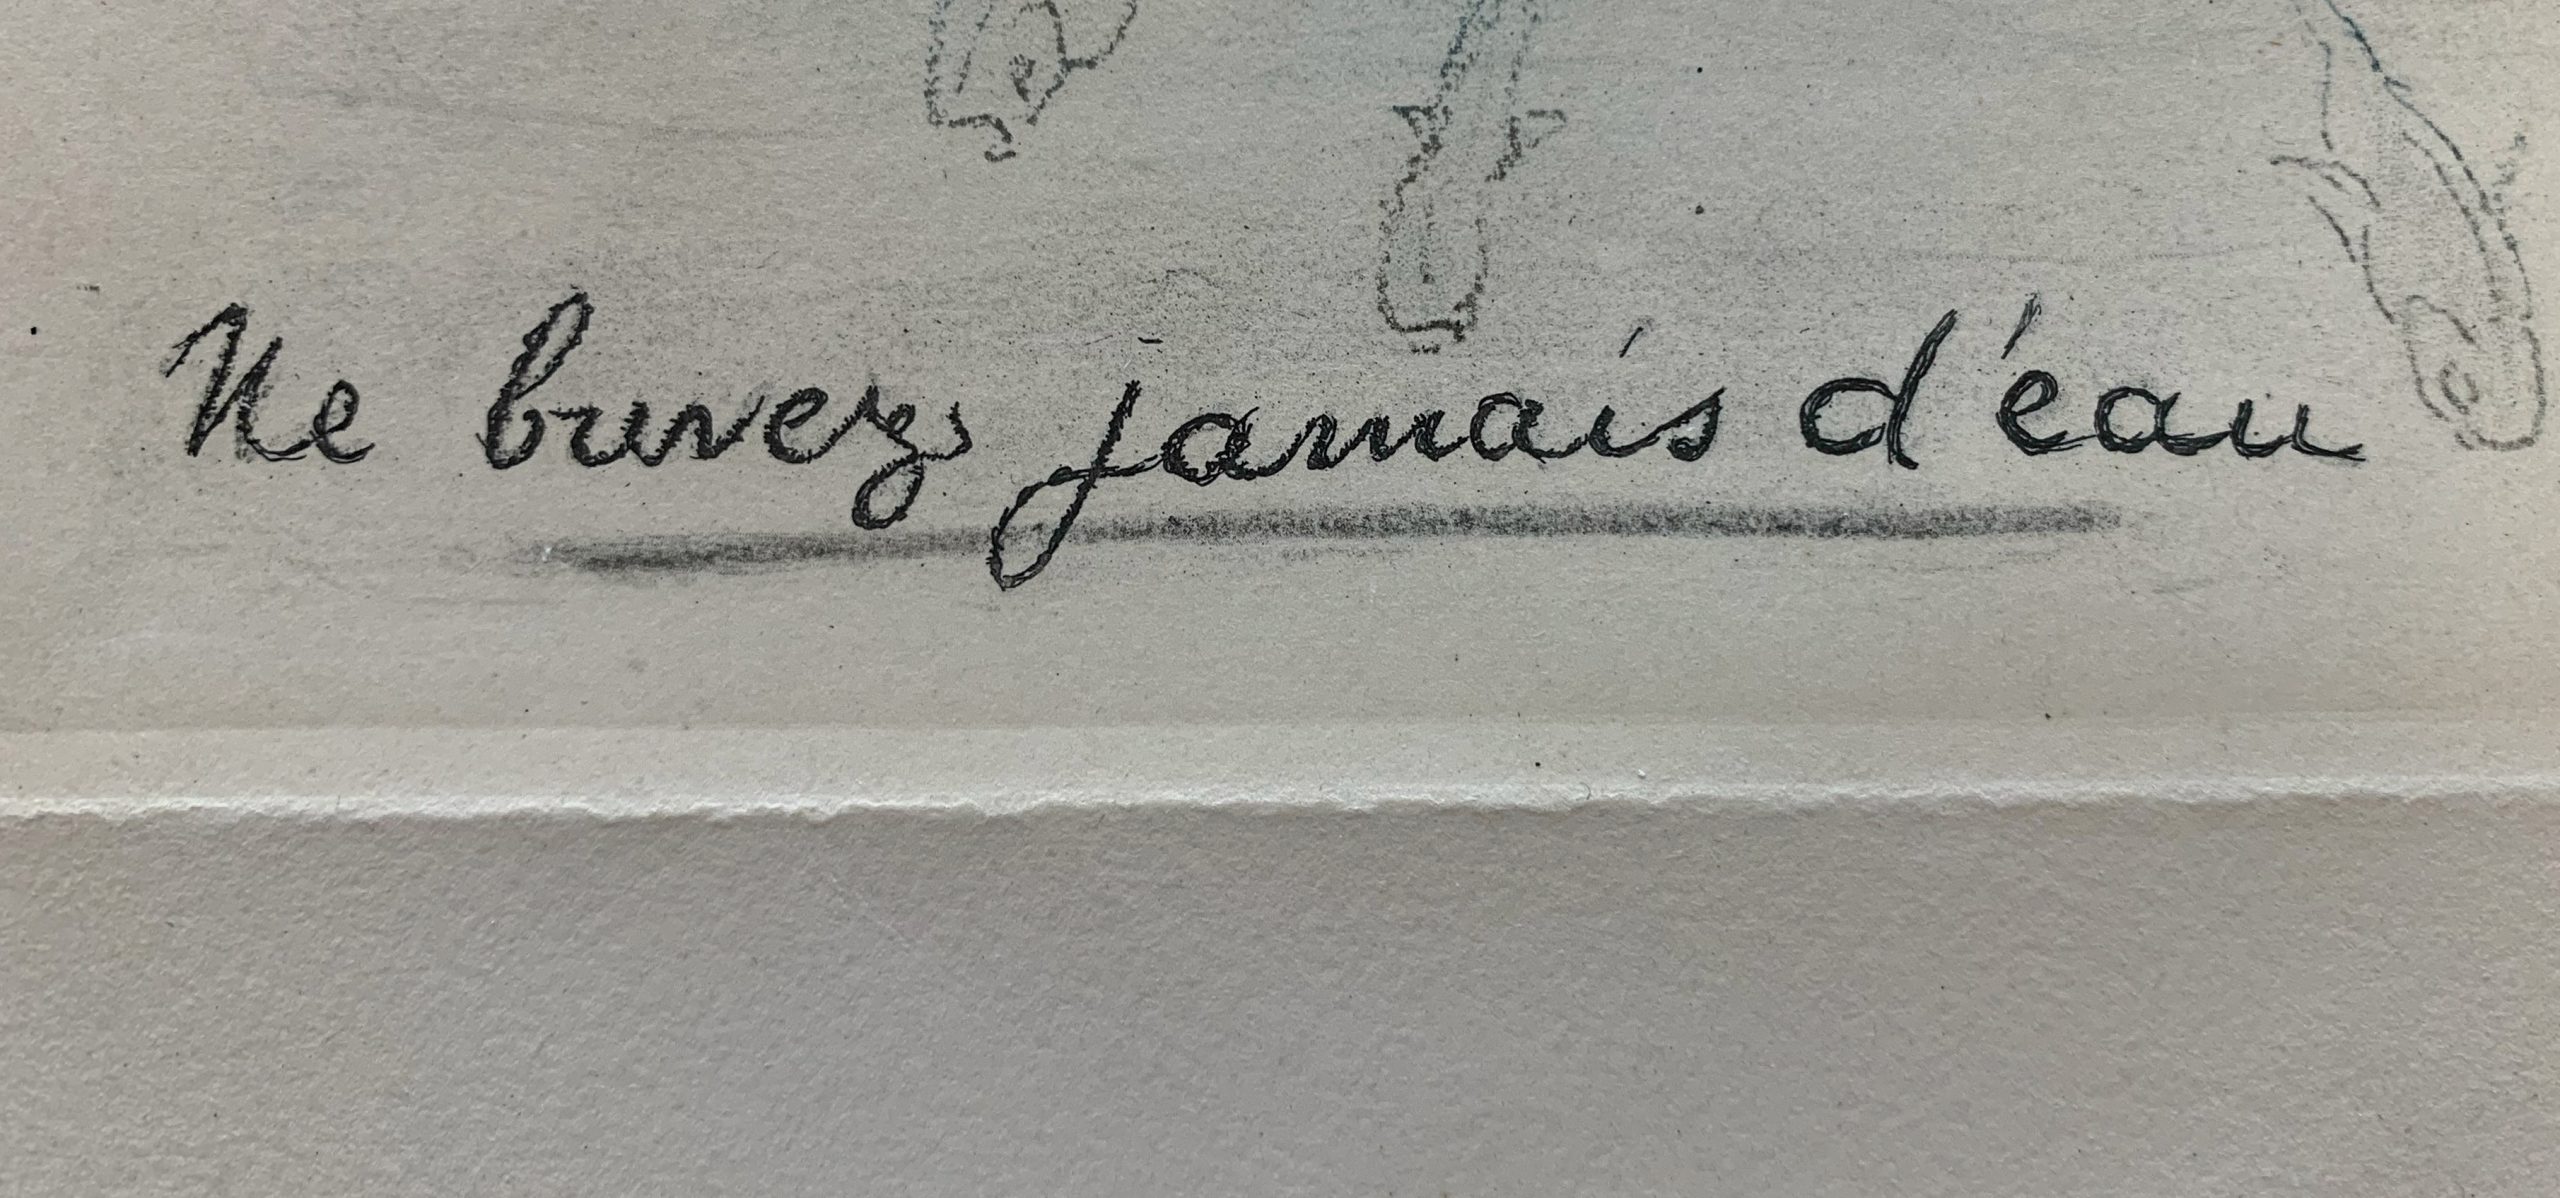 Ne buvez jamais d'eau